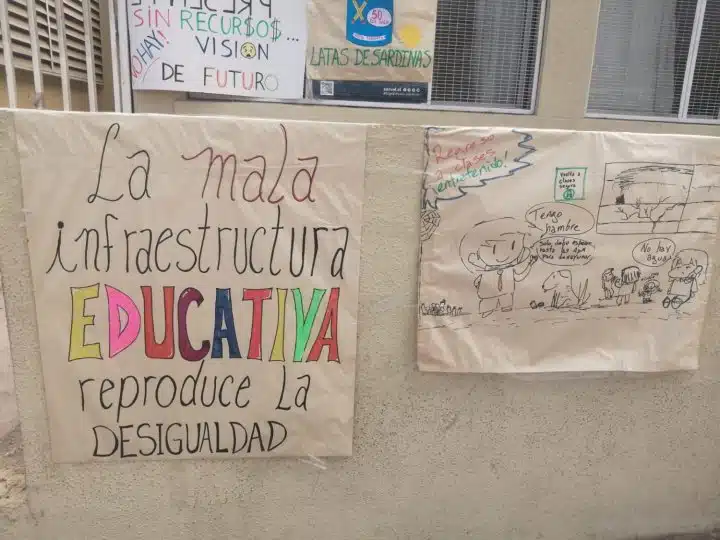 PRESENTE
SIN RECUR$O$...
¡NO HAY!
VISION
DE FUTURO
X 50
LATAS DE SARDINAS
La mala
infraestructura
EDUCATIVA
reproduce La
DESIGUALDAD
Regreso
a clases
entretenido!
Vuelta a
clases
segura
Tengo
hambre
Solo debo esperar
hasta las
para
No hay
agua